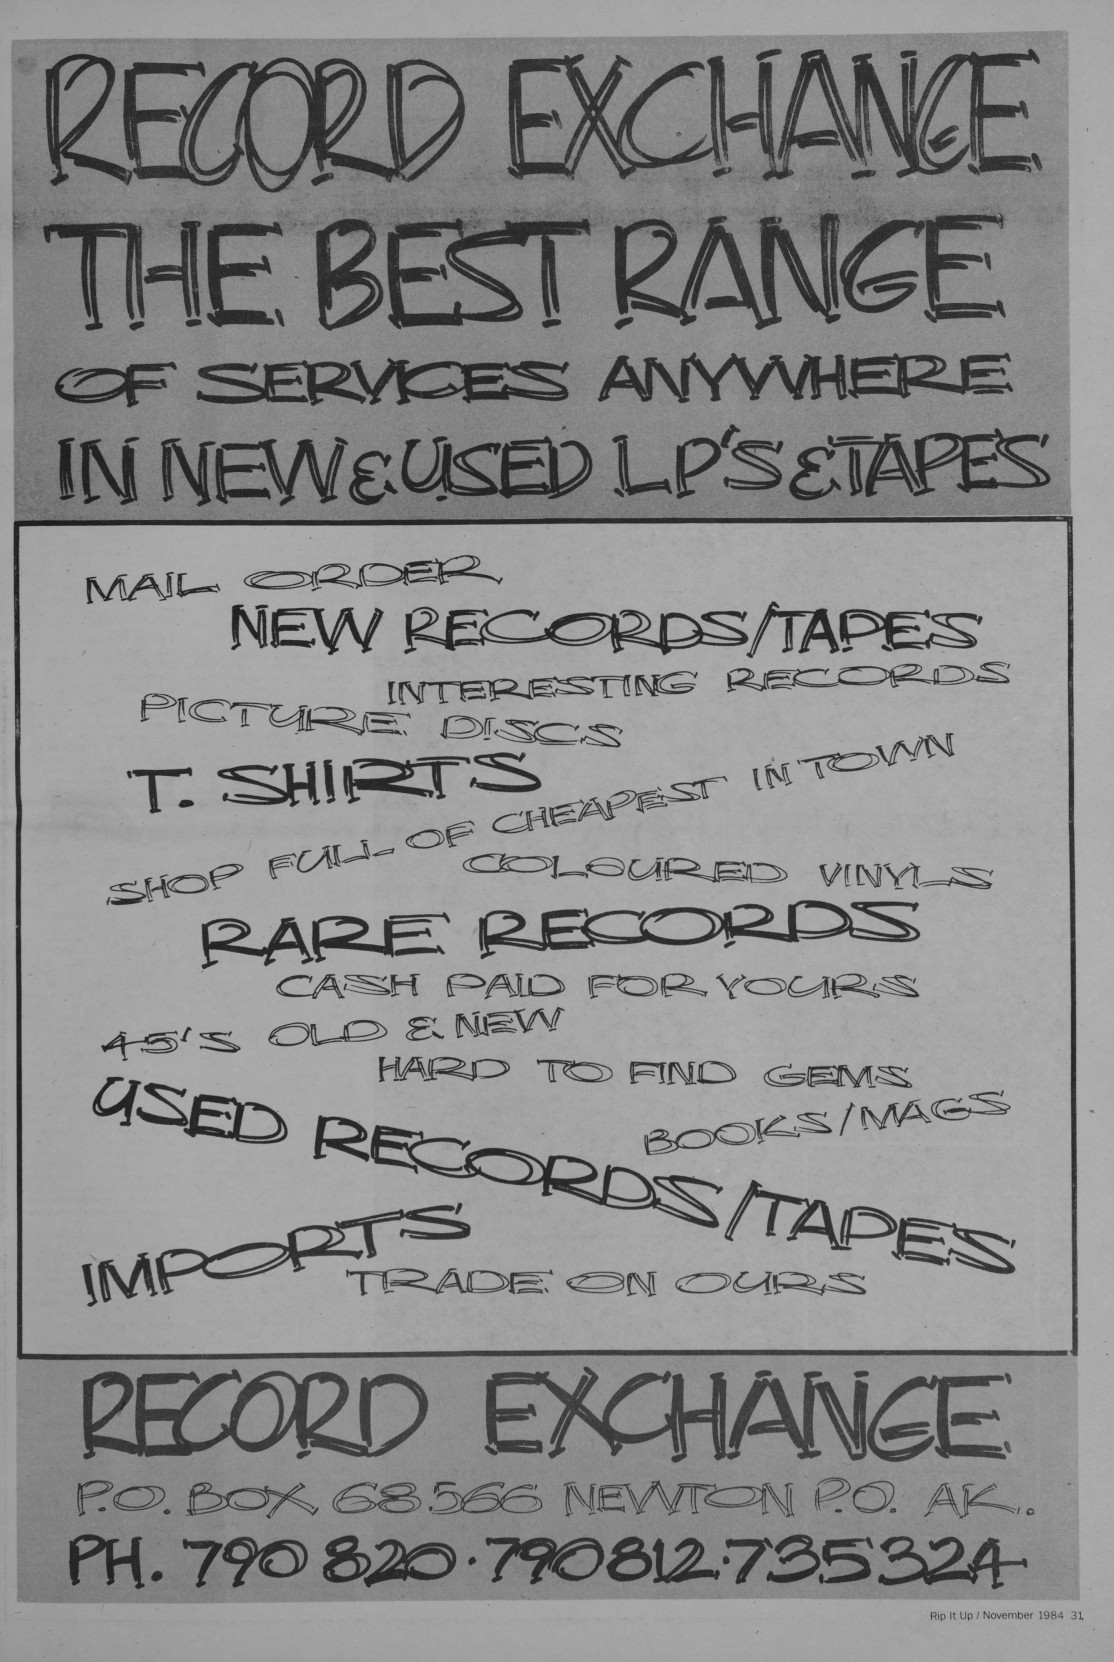 RECORD EXCHANGE
THE BEST RANGE
OF SERVICES ANYWHERE
IN NEW & USED LP'S & TAPES
MAIL ORDER
NEW RECORDS/TAPES
INTERESTING RECORDS
PICTURE DISCS
T. SHIRTS
SHOP FULL OF CHEAPEST IN TOWN
COLOURED VINYLS
RARE RECORDS
CASH PAID FOR YOURS
45'S OLD & NEW
HARD TO FIND GEMS
USED RECORDS/TAPES
BOOKS/MAGS
IMPORTS
TRADE ON OURS
RECORD EXCHANGE
P.O. BOX 68.566 NEWTON P.O. AK.
PH. 790 820·790812·735324
Rip It Up / November 1984 31